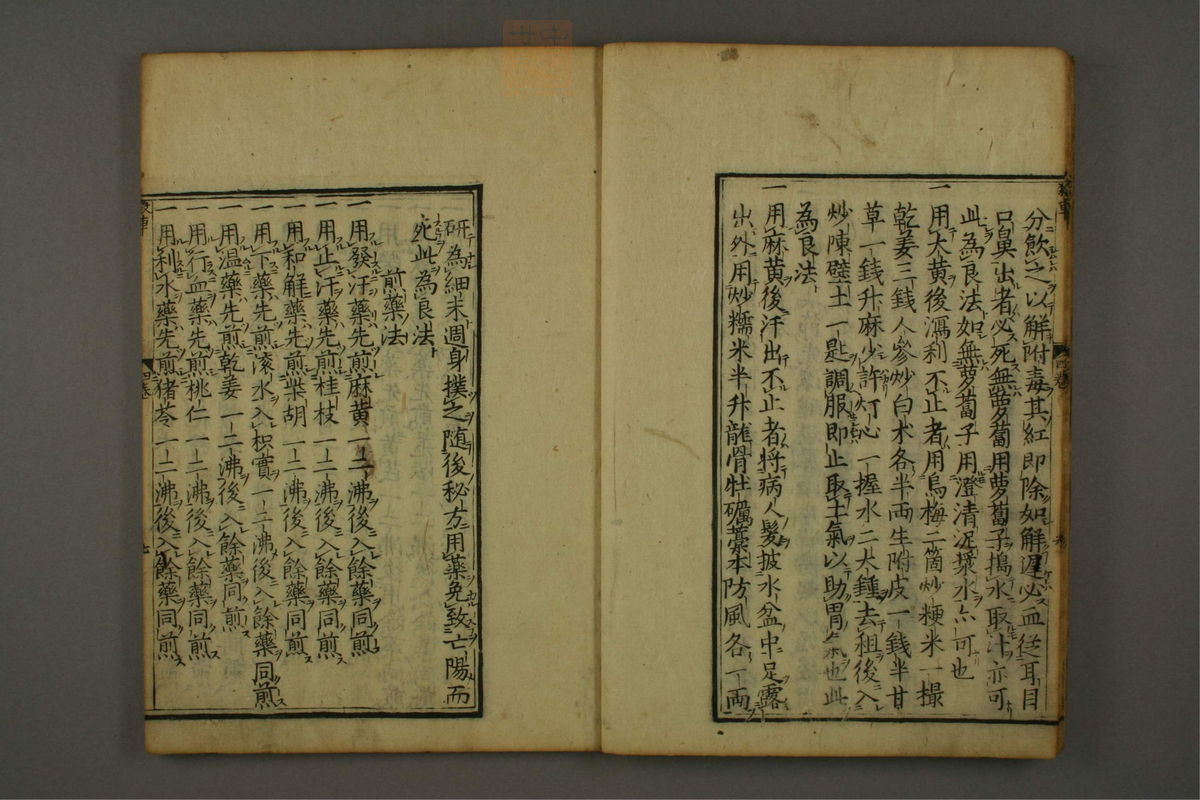 分飲之以解附毒其紅即除如解遲必血從耳目
口鼻出者必死無蘿蔔用蘿蔔子搗水取汁亦可
此為良法如無蘿蔔子用澄清泥漿水亦可也
一用大黃後瀉利不止者用烏梅二箇炒粳米一撮
乾姜三錢人參炒白朮各半兩生附皮一錢半甘
草一錢升麻少許灯心一握水二大鍾去租後入
炒陳壁土一匙調服即止取土氣以助胃氣也此
為良法
一用麻黃後汗出不止者將病人髮披水盆中足露
出外用炒糯米半升龍骨牡礪藁本防風各一兩
研為細末週身撲之隨後秘方用藥免致亡陽而
死此為良法
煎藥法
一用發汗藥先煎麻黃一二沸後入餘藥同煎
一用止汗藥先煎桂枝一二沸後入餘藥同煎
一用和解藥先煎柴胡一二沸後入餘藥同煎
一用下藥先煎滾水入枳實一二沸後入餘藥同煎
一用溫藥先煎乾姜一二沸後入餘藥同煎
一用行血藥先煎桃仁一二沸後入餘藥同煎
一用利水藥先煎猪苓一二沸後入餘藥同煎
四卷
七